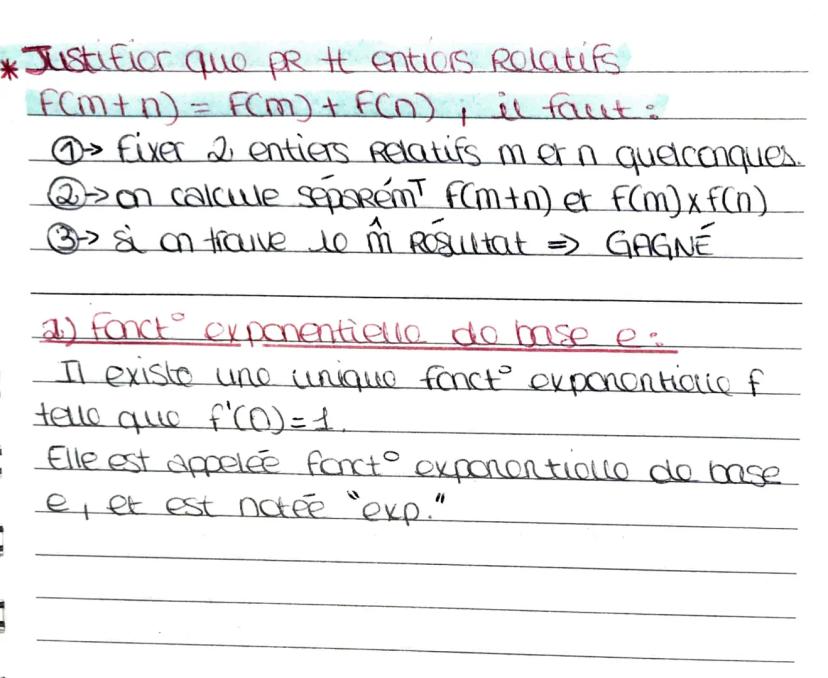 * Justifier que pR tt entiers Relatifs
f(m+n) = f(m) + f(n) , il faut :
①→ fixer 2 entiers Relatifs m et n quelconques.
②→ on calcule séparémᵀ f(m+n) et f(m) x f(n)
③→ si on trouve le m̂ Résultat => GAGNÉ
2) fonct° exponentielle de base e :
Il existe une unique fonct° exponentielle f
telle que f'(0)=1.
Elle est appelée fonct° exponentielle de base
e, et est notée "exp."